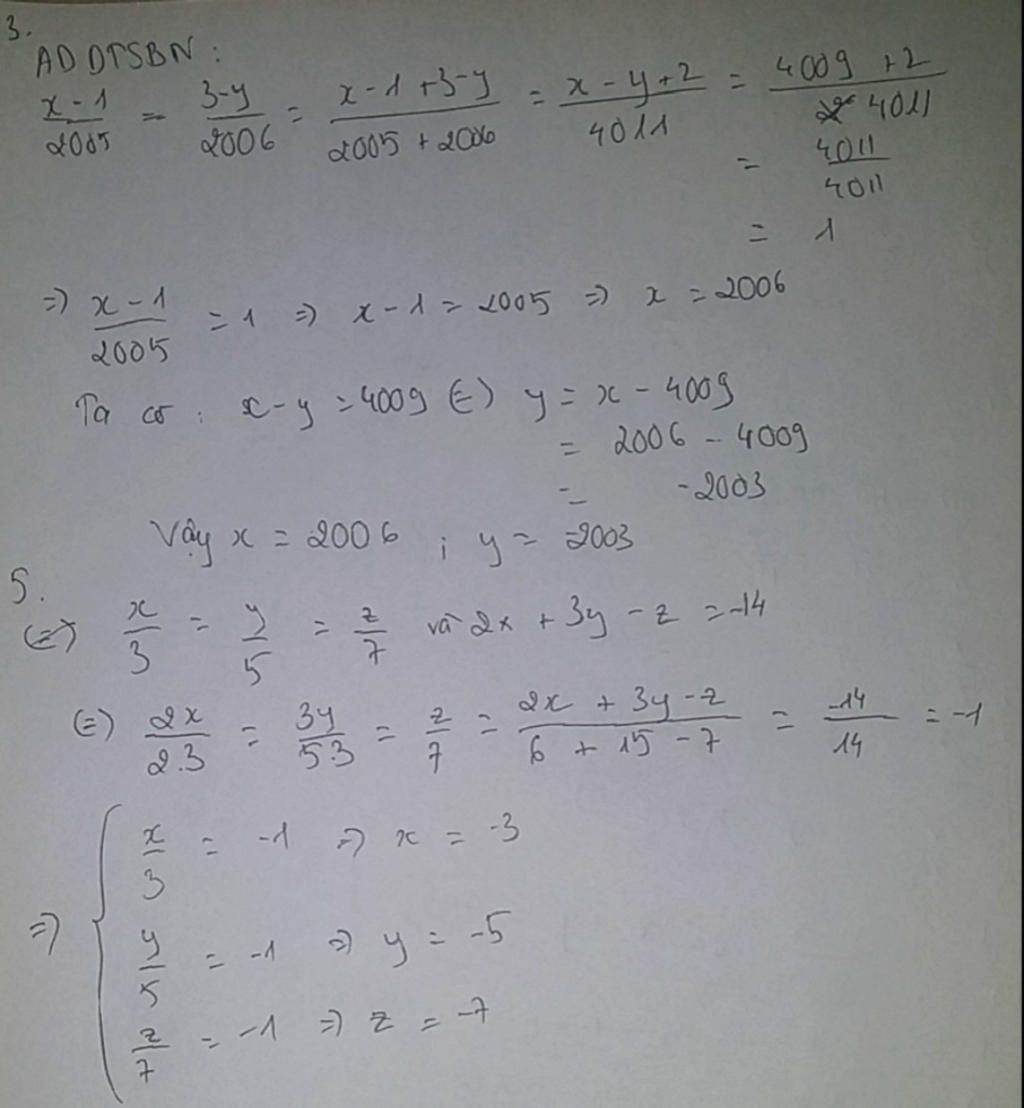 3.
AD DTSBN :
x - 1 / 2005 = 3-y / 2006 = x - 1 + 3-y / 2005 + 2006 = x - y + 2 / 4011 = 4009 + 2 / 4011
= 4011 / 4011
= 1
=) x - 1 / 2005 = 1 =) x - 1 = 2005 =) x = 2006
Ta có : x - y = 4009 (=) y = x - 4009
= 2006 - 4009
= -2003
Vậy x = 2006 ; y = -2003
5.
(=) x / 3 = y / 5 = z / 7 và 2x + 3y - z = -14
(=) 2x / 2.3 = 3y / 5.3 = z / 7 = 2x + 3y - z / 6 + 15 - 7 = -14 / 14 = -1
=) { x / 3 = -1 =) x = -3
y / 5 = -1 =) y = -5
z / 7 = -1 =) z = -7